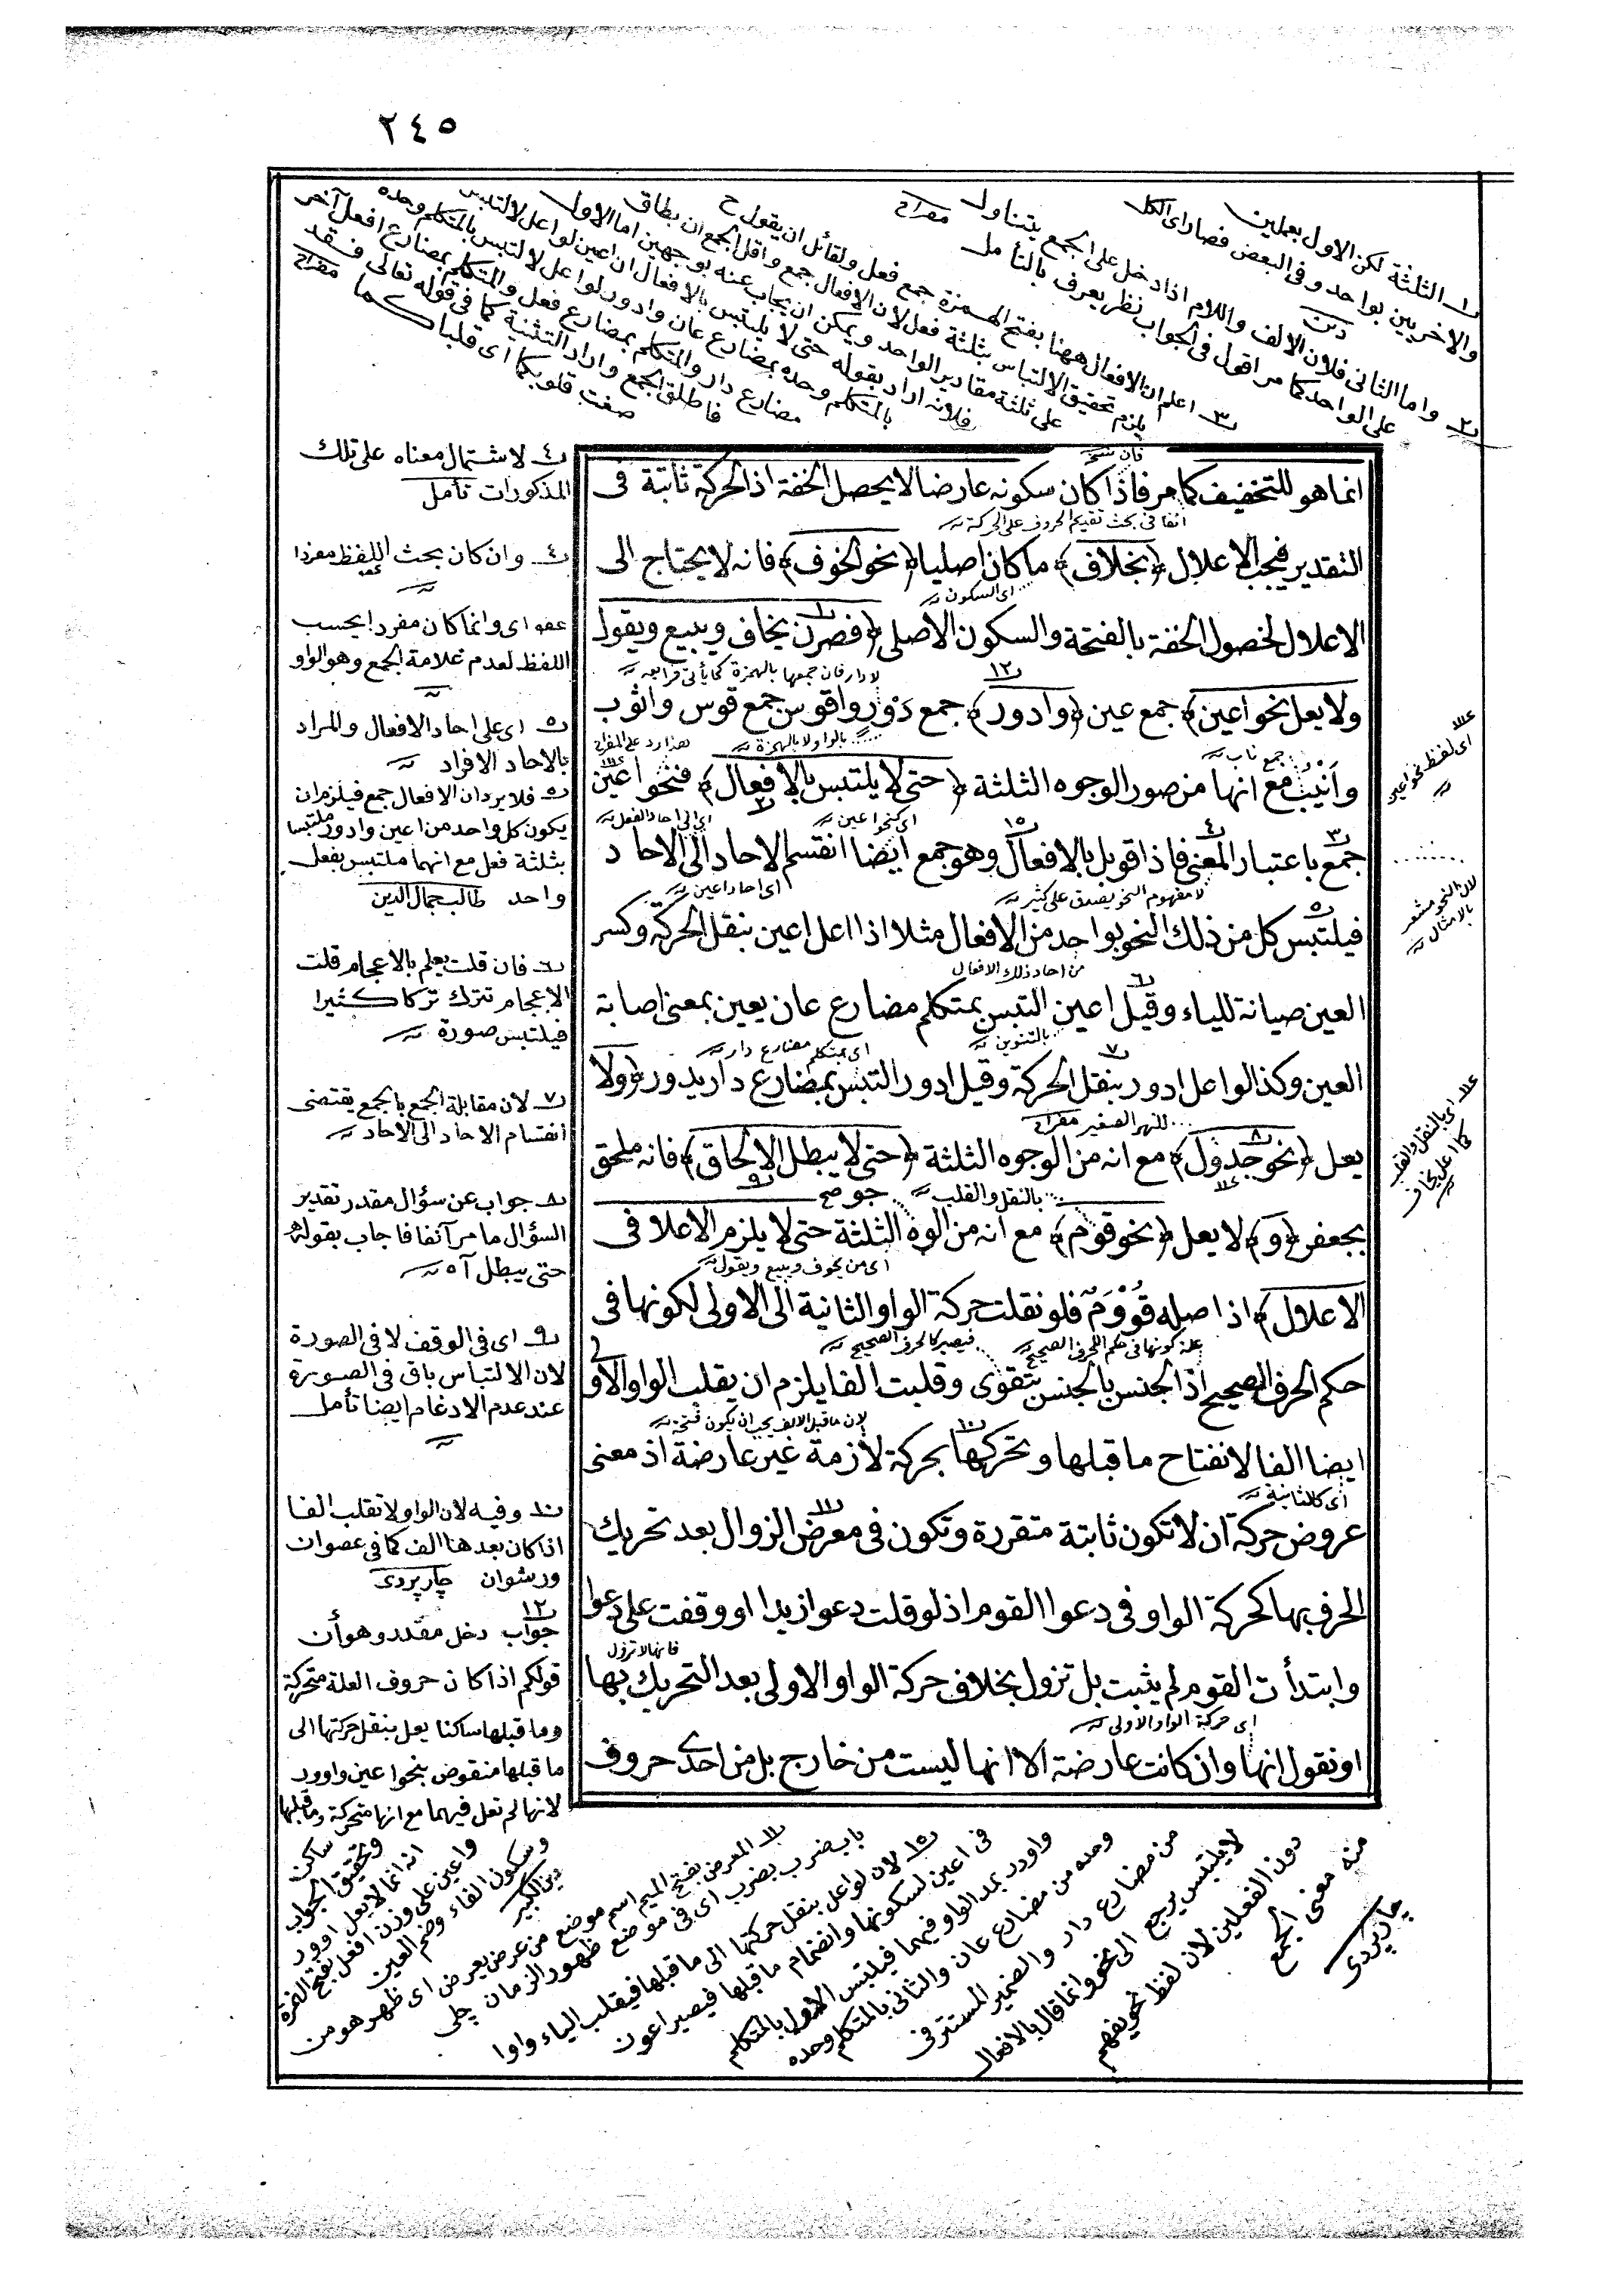 ٢٤٥
١ الثلثة لكن الاول بعملين
والاخريين بواحد وفى البعض فصار اى الكل
٢ واما الثانى فلان الالف واللام اذا دخل على الجمع يتناول
على الواحد كما مر اقول فى الجواب نظر يعرف بالتأمل
٣ اعلم ان الافعال ههنا بفتح الهمزة جمع فعل ولقائل ان يقول ح
يلزم تحقيق الالتباس بثلثة فعل لان الافعال جمع واقل الجمع ان يطلق
على ثلثة مقادير الواحد ويمكن ان يجاب عنه بوجهين اما الاول
فلانه اراد بقوله حتى لا يلتبس بالافعال ان اعين لو اعل لالتبس
بالمتكلم وحده بمضارع عان وادور لو اعل لالتبس بالمتكلم وحده
مضارع دار والمتكلم بمضارع فعل
فاطلق الجمع واراد التثنية كما فى قوله تعالى فقد
صغت قلوبكما اى قلباكما
انما هو للتخفيف كما مر فاذا كان سكونه عارضا لا يحصل الخفة اذ الحركة ثابتة فى
آنفا فى بحث تقيم الحروف على الحركة
التقدير فيجب الاعلال ﴿بخلاف﴾ ما كان اصليا ﴿نحو الخوف﴾ فانه لا يحتاج الى
اى السكون
الاعلال لحصول الخفة بالفتحة والسكون الاصلى ﴿فصرن يخاف ويبيع ويقول
ولا يعل نحو اعين﴾ جمع عين ﴿وادور﴾ جمع دَوْر واقوس جمع قوس واثوب
جمع ناب
بالواو لا بالهمزة
وأَنْيُب مع انها من صور الوجوه الثلثة ﴿حتى لا يلتبس بالافعال﴾ فنحو اعين
اى كنحو اعين
اى الى احاد الفعل
جمع باعتبار المعنى فاذا قوبل بالافعال وهو جمع ايضا انقسم الاحاد الى الاحاد
لا مفهوم النحو يصدق على كثير
اى احاد اعين
فيلتبس كل من ذلك النحو بواحد من الافعال مثلا اذا اعل اعين بنقل الحركة وكسر
من احاد ذلك الافعال
العين صيانة للياء وقيل اعين التبس بمتكلم مضارع عان يعين بمعنى اصابة
بالتنوين
اى بمتكلم مضارع دار
العين وكذا لو اعل ادور بنقل الحركة وقيل ادور التبس بمضارع دار يدور ﴿ولا
للنهر الصغير
يعل ﴿نحو جدول﴾ مع انه من الوجوه الثلثة ﴿حتى لا يبطل الالحاق﴾ فانه ملحق
بالنقل والقلب
بجعفر ﴿و﴾ لا يعل ﴿نحو قوم﴾ مع انه من الوه الثلثة حتى لا يلزم الاعلا فى
اى من يخوف ويبيع ويقول
الاعلال﴾ اذ اصله قَوْوَمَ فلو نقلت حركة الواو الثانية الى الاولى لكونها فى
علة كونها فى حكم الحرف الصحيح
فيصير كالحرف الصحيح
حكم الحرف الصحيح اذ الجنس بالجنس يتقوى وقلبت الفا يلزم ان يقلب الواو الاولى
لان ما قبل الالف يجب ان يكون فتحة
ايضا الفا لانفتاح ما قبلها وتحركها بحركة لازمة غير عارضة اذ معنى
اى كالثانية
عروض حركة ان لا تكون ثابتة متقررة وتكون فى معرض الزوال بعد تحريك
الحرف بها كحركة الواو فى دعوا القوم اذ لو قلت دعوا زيدا او وقفت على دعوا
فانها لا تزول
وابتدأت القوم لم يثبت بل تزول بخلاف حركة الواو الاولى بعد التحريك بها
اى حركة الواو الاولى
او نقول انها وان كانت عارضة الا انها ليست من خارج بل من احدى حروف
٤ لاشتمال معناه على تلك
المذكورات تأمل
٤ وان كان بحث اللفظ مفردا
عفو اى وانما كان مفردا بحسب
اللفظ لعدم علامة الجمع وهو الواو
٥ اى على احاد الافعال والمراد
بالاحاد الافراد
٥ فلا يرد ان الافعال جمع فيلزم ان
يكون كل واحد من اعين وادور ملتبسا
بثلثة فعل مع انهما ملتبس بفعل
واحد طالب جمال الدين
٦ فان قلت يعلم بالاعجام قلت
الاعجام تترك تركا كثيرا
فيلتبس صورة
٧ لان مقابلة الجمع بالجمع يقتضى
انقسام الاحاد الى الاحاد
٨ جواب عن سؤال مقدر تقدير
السؤال ما مر آنفا فاجاب بقوله
حتى يبطل آه
٩ اى فى الوقف لا فى الصورة
لان الالتباس باق فى الصورة
عند عدم الادغام ايضا تأمل
١٠ وفيه لان الواو لا تقلب الفا
اذا كان بعدها الف كما فى عصوان
ورشوان چارپردى
١٢
جواب دخل مقدر وهو أن
قولكم اذا كان حروف العلة متحركة
وما قبلها ساكنا يعل بنقل حركتها الى
ما قبلها منقوض بنحو اعين وادور
لانها لم تعل فيهما مع انها متحركة وما قبلها
ساكن
وتحقيق الجواب
انه انما لا يعل ادور
واعين على وزن افعل بفتح الهمزة
وسكون الفاء وضم العين
دين الكبير
١١ المعرض بفتح الميم اسم موضع من عرض يعرض اى ظهر هو من
باب ضرب يضرب اى فى موضع ظهور الزمان چلى
١٥ لان لو اعل بنقل حركتها الى ما قبلها فيقلب الياء واوا
فى اعين لسكونها وانضمام ما قبلها فيصير اعون
وادور بمد الواو فيهما فيلتبس الاول بالمتكلم
وحده من مضارع عان والثانى بالمتكلم وحده
من مضارع دار والضمير المستتر فى
لا يلتبس يرجع الى نحو وانما قال بالافعال
دون الفعلين لان لفظ نحو يفهم
منه معنى الجمع
چارپردى
اى لفظ نحو اعين
لان النحو مشعر
بالامثال
اى بالنقل والقلب
كما اعل يخاف